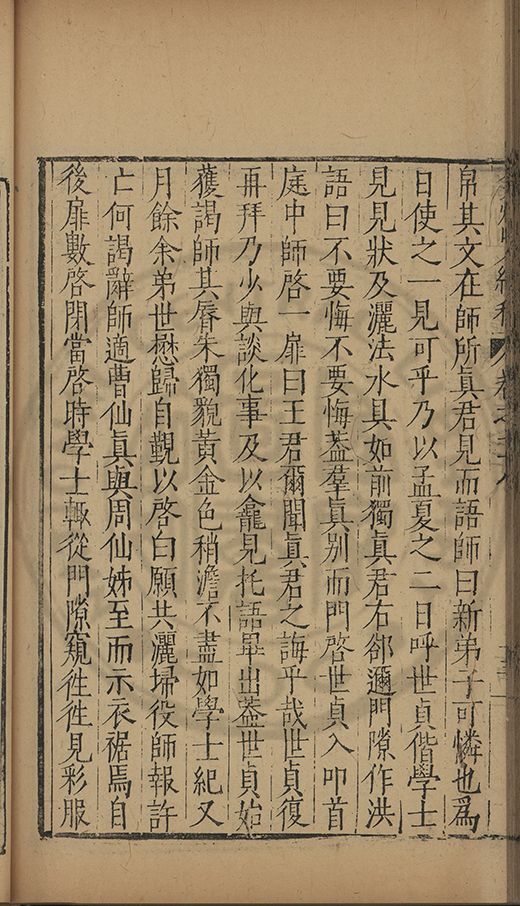 帛其文在師所眞君見而語師曰新弟子可憐也爲
日使之一見可乎乃以孟夏之二日呼世貞偕學士
見見狀及灑法水具如前獨眞君右郤邇門隙作洪
語曰不要悔不要悔葢羣眞别而門啓世貞入叩首
庭中師啓一扉曰王君爾聞眞君之誨乎哉世貞復
再拜乃少與談化事及以龕見托語畢出葢世貞始
獲謁師其脣朱獨貌黃金色稍澹不盡如學士紀又
月餘余弟世懋歸自覲以啓白願共灑埽役師報許
亡何謁辭師適曹仙眞與周仙姊至而示衣裾焉自
後扉數啓閉當啓時學士輙從門隙窺徃徃見彩服